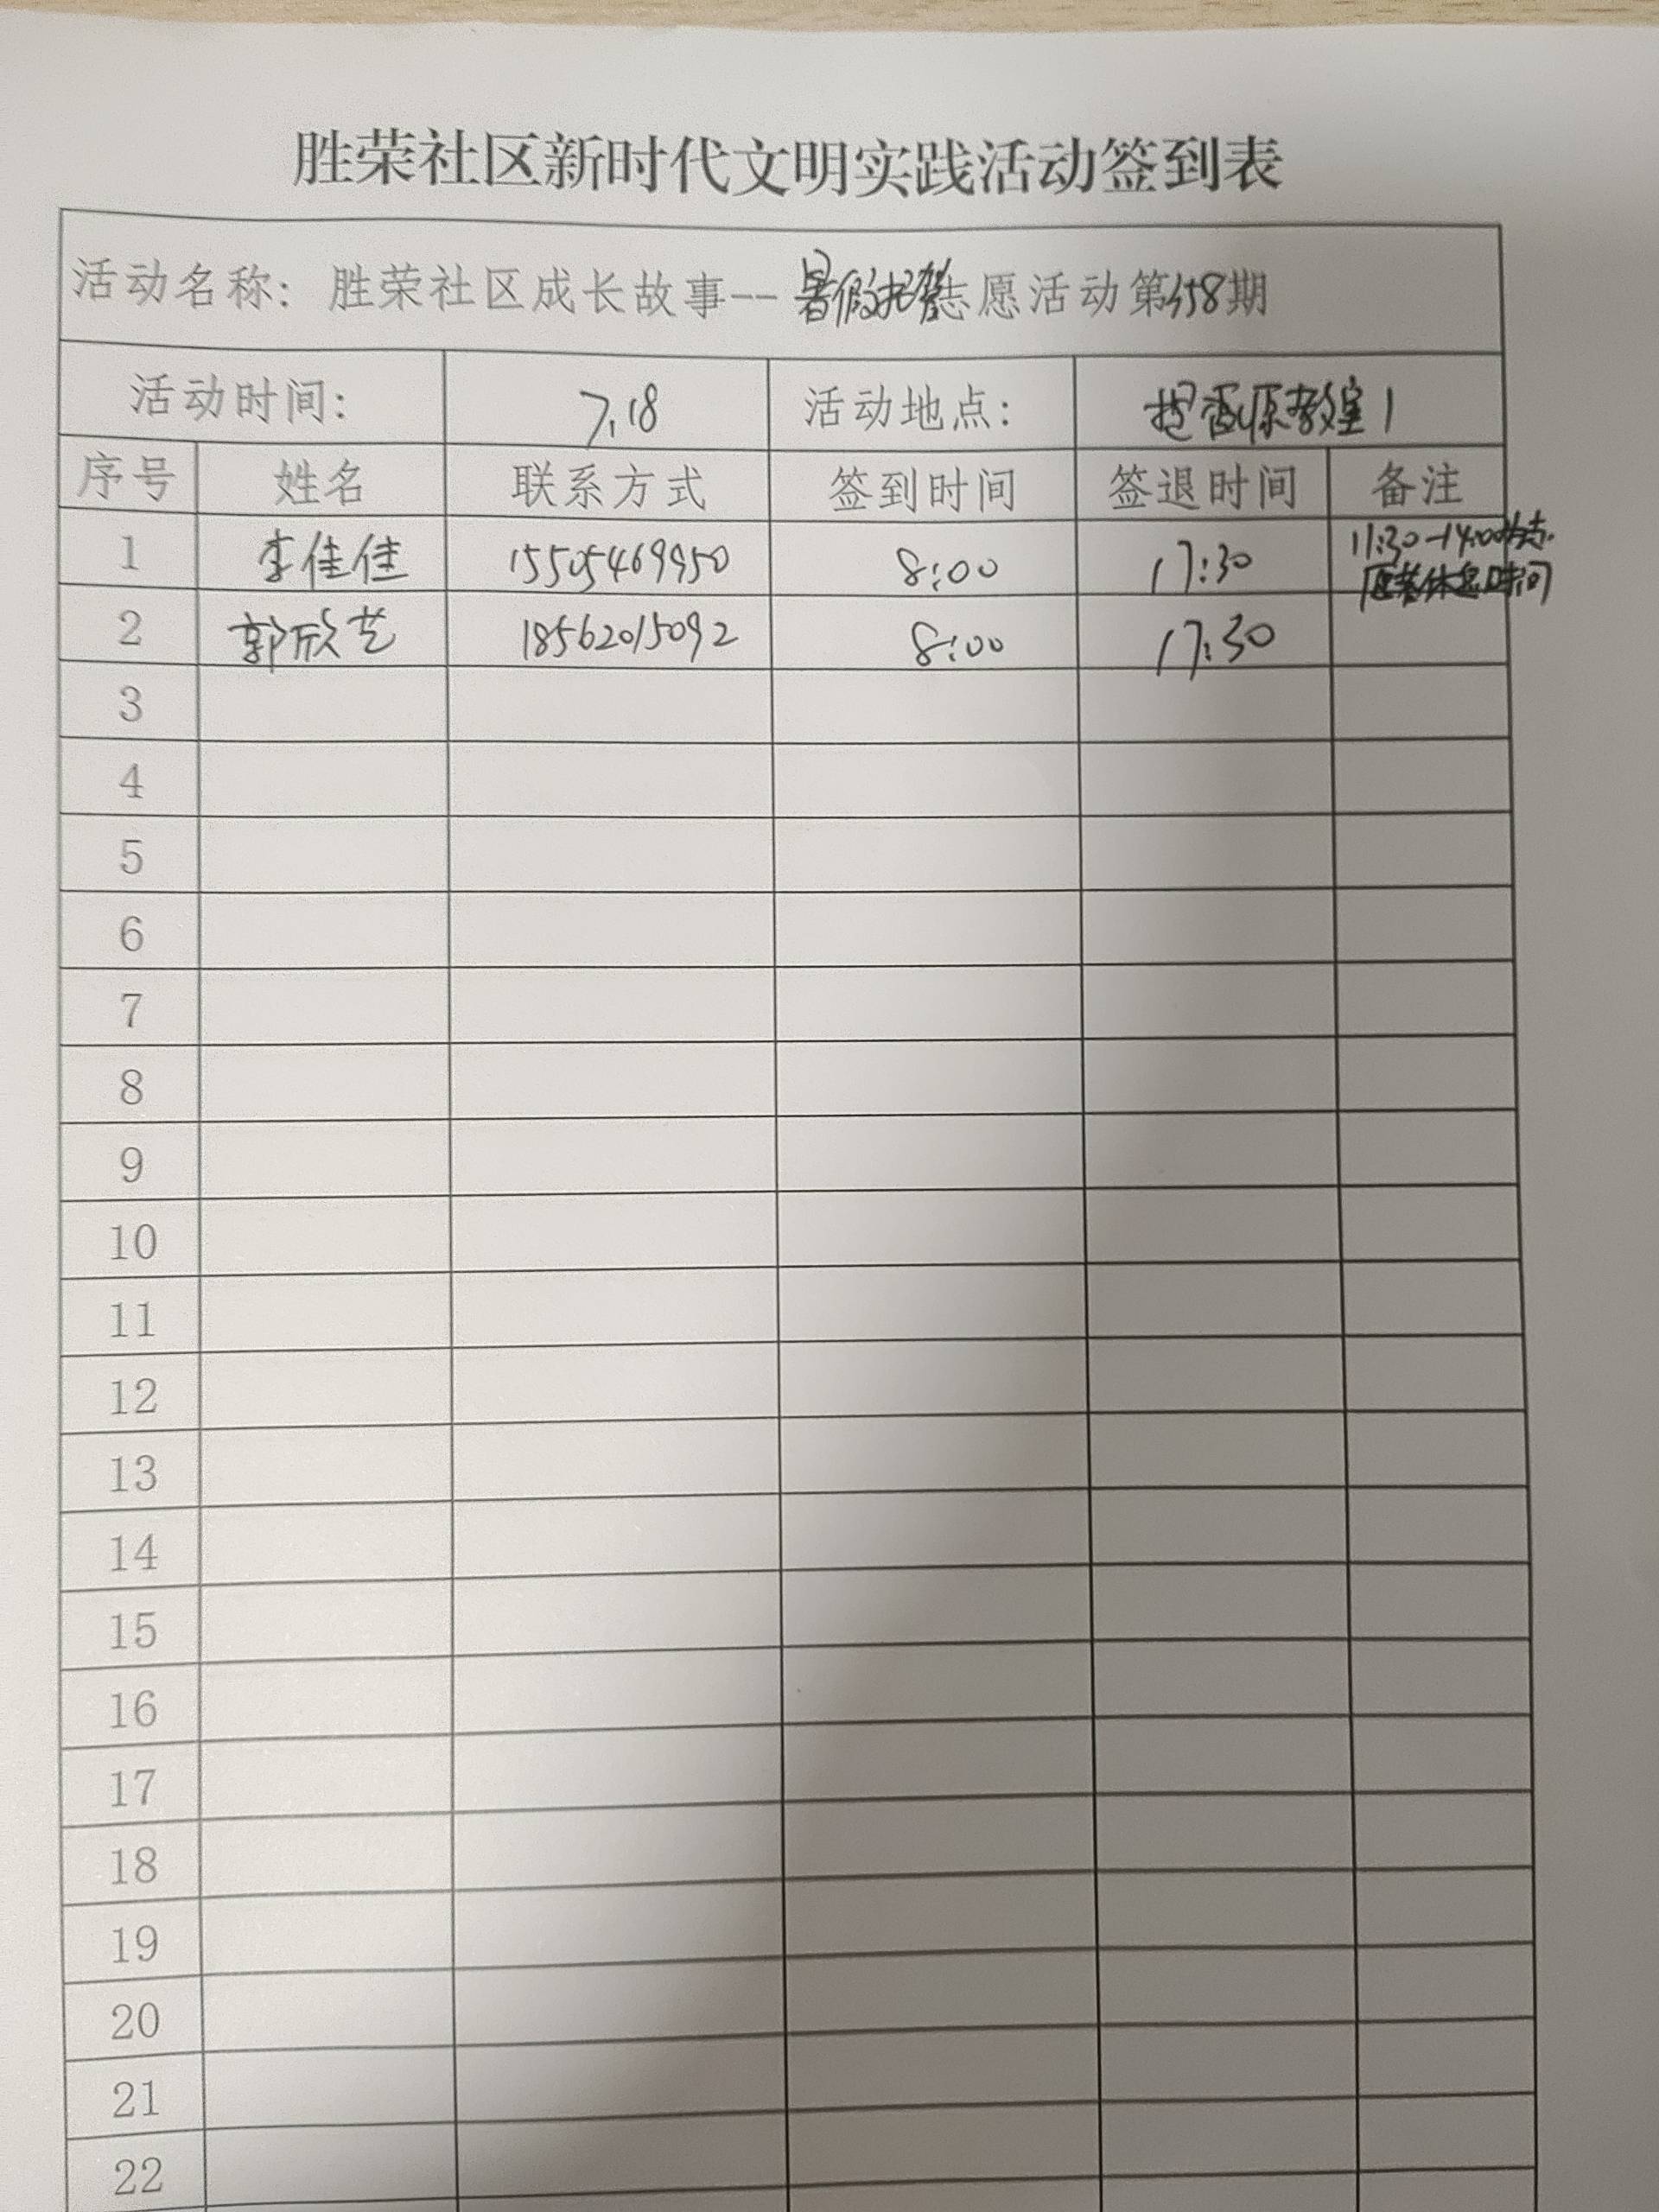 胜荣社区新时代文明实践活动签到表
活动名称：胜荣社区成长故事--暑假托管志愿活动第458期
活动时间： 7.18 活动地点： 教室1
序号 姓名 联系方式 签到时间 签退时间 备注
1 李佳佳 15505469950 8:00 17:30 11:30-14:00为志
愿者休息时间
2 郭欣艺 18562015092 8:00 17:30
3
4
5
6
7
8
9
10
11
12
13
14
15
16
17
18
19
20
21
22